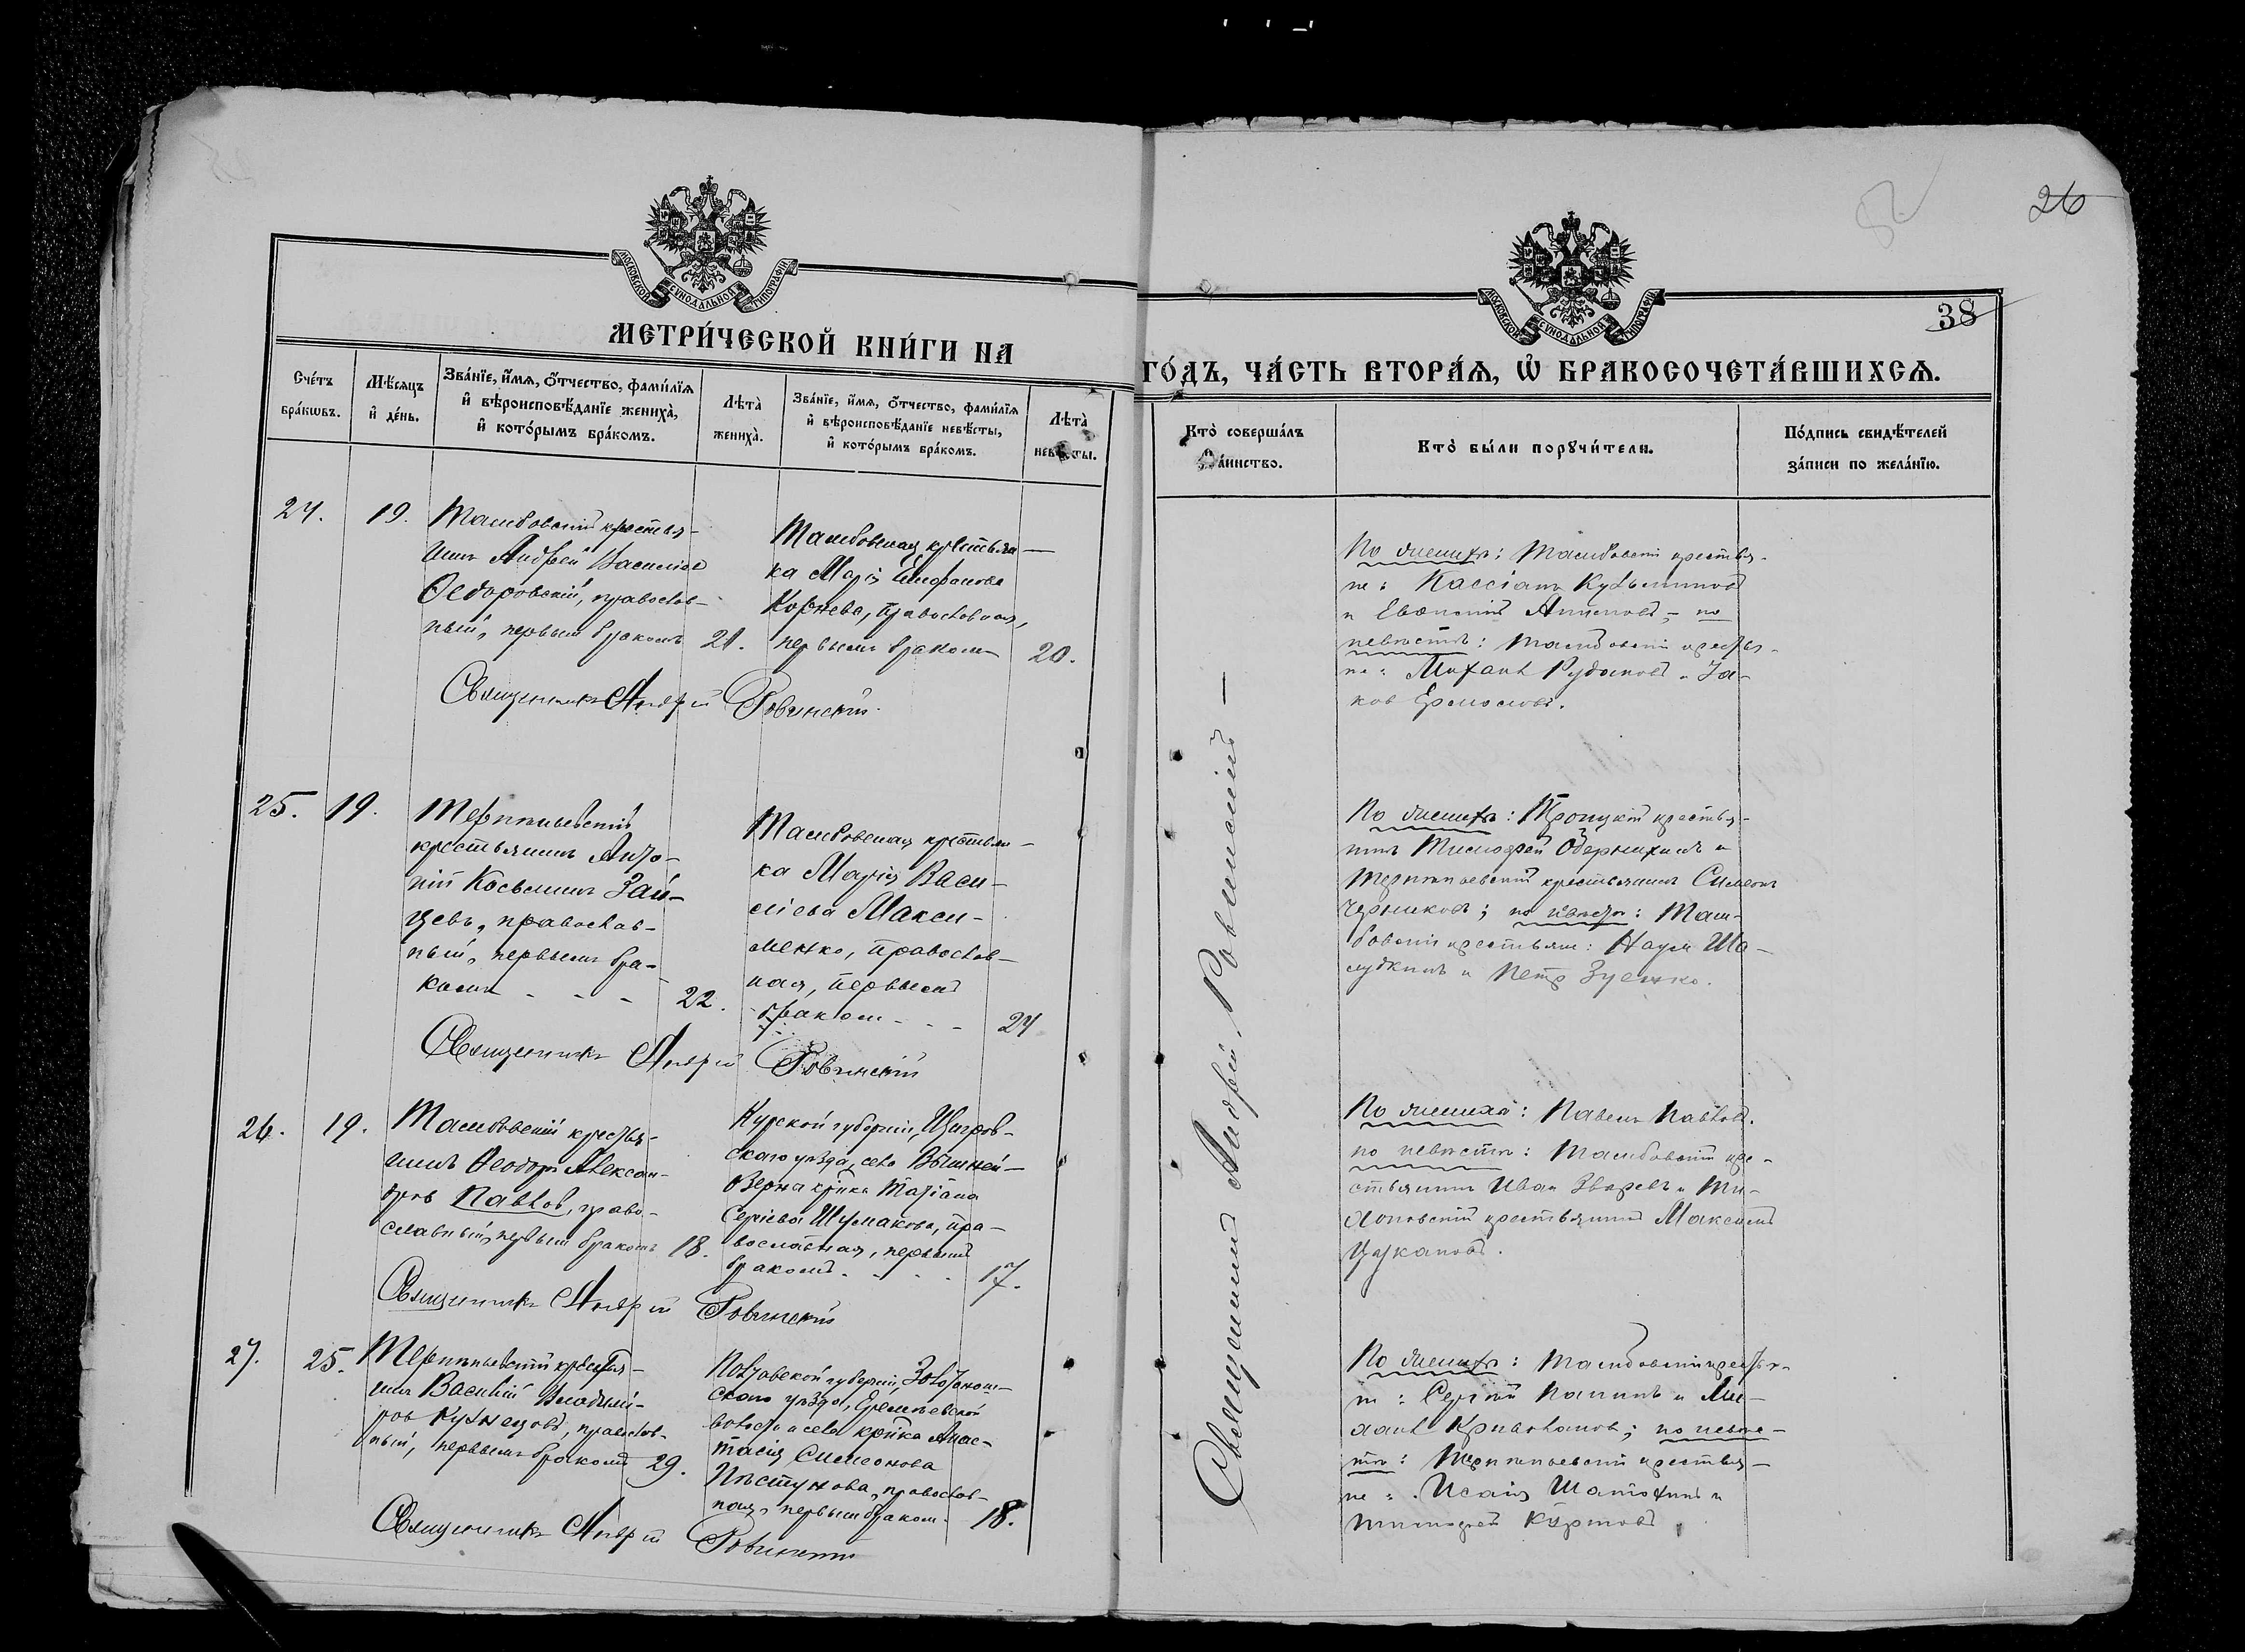 26
38
МОСКОВСКОЙ СУНОДАЛЬНОЙ ТИПОГРАФІИ
МОСКОВСКОЙ СУНОДАЛЬНОЙ ТИПОГРАФІИ
МЕТРИ́ЧЕСКОЙ КНИ́ГИ НА
ГО́ДЪ, ЧА́СТЬ ВТОРА́Я, Ѡ҆ БРАКОСОЧЕТА́ВШИХСѦ.
Сче́тъ
бра́кѡвъ.
Мѣ́сѧцъ
и҆ де́нь.
Зва́нїе, и҆́мѧ, ѻ҆́тчество, фами́лїѧ
и҆ вѣроисповѣ́данїе жениха̀,
и҆ кото́рымъ бра́комъ.
Лѣта̀
жениха̀.
Зва́нїе, и҆́мѧ, ѻ҆́тчество, фами́лїѧ
и҆ вѣроисповѣ́данїе невѣ́сты,
и҆ кото́рымъ бра́комъ.
Лѣта̀
невѣ́сты.
Кто̀ соверша́лъ
та́инство.
Кто̀ бы́ли порꙋчи́тели.
По́дпись свидѣ́телей
за́писи по жела́нїю.
24.
19.
Тамбовскій крестья-
нинъ Андрей Васильев
Ѳедоровскій, православ-
ный, первымъ бракомъ
21.
Тамбовская крестьян-
ка Марія Епифанова
Корнева, православная,
первымъ бракомъ
20.
Священникъ Андрей Ровинскій
По женихѣ: Тамбовскіе крестья-
не: Кассіанъ Кузьминовъ
и Евѳимій Антиповъ, - по
невѣстѣ: Тамбовскіе крестья-
не: Михаил Рудаковъ и Іа-
ков Ермоловъ.
25.
19.
Терпѣньевскій
крестьянинъ Анто-
ній Косьминъ Зай-
цевъ, православ-
ный, первымъ бра-
комъ - - -
22.
Тамбовская крестьян-
ка Марія Васи-
ліева Макси-
менко, православ-
ная, первымъ
бракомъ - - -
24
Священникъ Андрей Ровинскій
По женихѣ: Троицкій крестья-
нинъ Тимофей Одернихинъ и
Терпѣньевскій крестьянинъ Симеонъ
Черниковъ; по невѣстѣ: Там-
бовскіе крестьяне: Наумъ Ше-
лудкинъ и Петр Зуенко.
26.
19.
Тамбовскій крестья-
нинъ Ѳеодоръ Алексан-
дров Павлов, право-
славный, первымъ бракомъ
18.
Курской губерніи, Щигров-
скаго уѣзда, села Вышней-
Озерна кр̃нка Татіана
Сергіева Шумакова, пра-
вославная, первымъ
бракомъ - - -
17.
Священникъ Андрей Ровинскій
По жениха: Павелъ Павловъ.
по невѣстѣ: Тамбовскій кре-
стьянинъ Иван Зваревъ и Ти-
хоновскій крестьянинъ Максимъ
Цукановъ.
27.
25.
Терпѣньевскій крестья-
нинъ Василій Владимі-
ров Кузнецовъ, православ-
ный, первымъ бракомъ
29.
Полтавской губерніи, Золотонош-
скаго уѣзда, Еремѣевской
волости и села кр̃нка Анас-
тасія Симеонова
Пѣстунова, православ-
ная, первымъ браком.
18.
Священникъ Андрей Ровинскій
По женихѣ: Тамбовскіе крестья-
не: Сергѣй Папинъ и Ми-
хаилъ Кривлановъ; по невѣс-
тѣ: Терпѣньевскіе крестья-
не: Исаія Шатохинъ и
Тимофей Куртовъ.
Священникъ Андрей Ровинскій